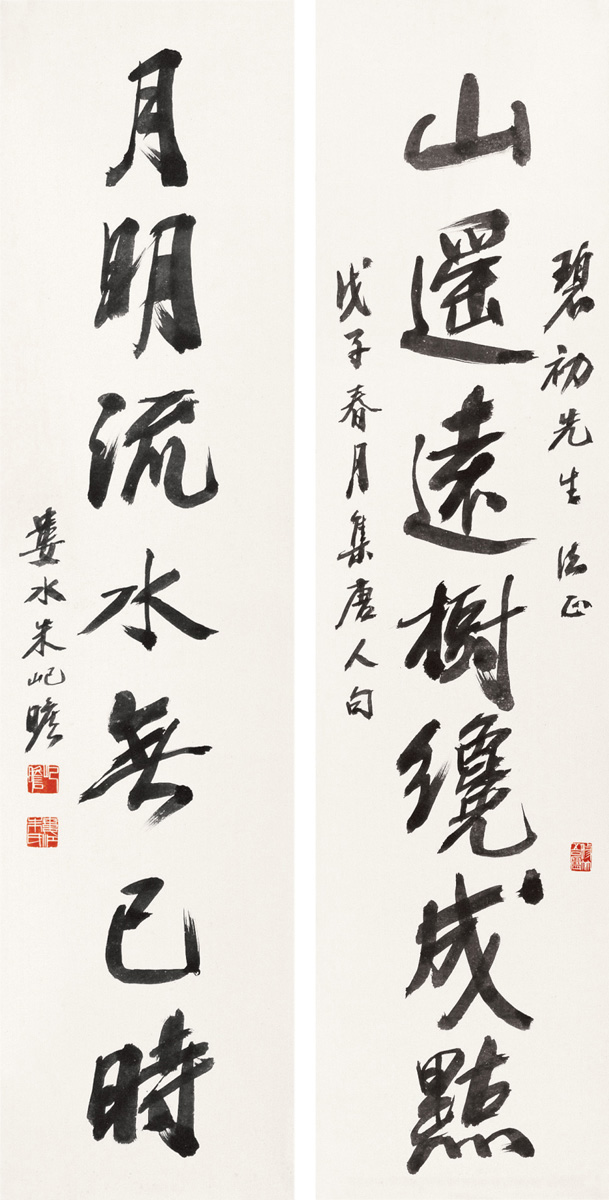 碧初先生法正
山遥遠樹纔成點
戊子春月集唐人句
月明流水無已時
婁水朱屺瞻